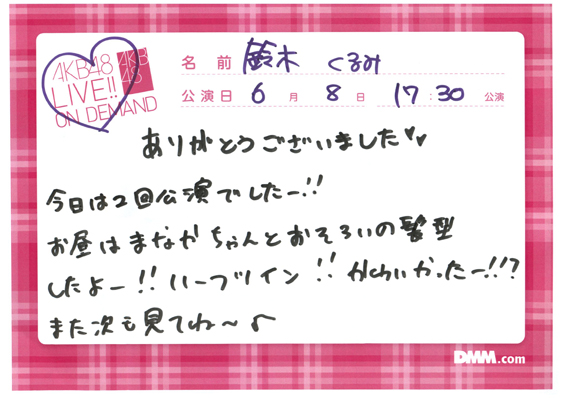 AKB48
LIVE!!
ON DEMAND
AKB
48
名前 鈴木 くるみ
公演日 6月 8日 17:30 公演
ありがとうございました♡♥
今日は2回公演でしたー!!
お昼はまなかちゃんとおそろいの髪型
したよー!! ハーフツイン!! かわいかったー!!?
また次も見てね〜♪
DMM.com